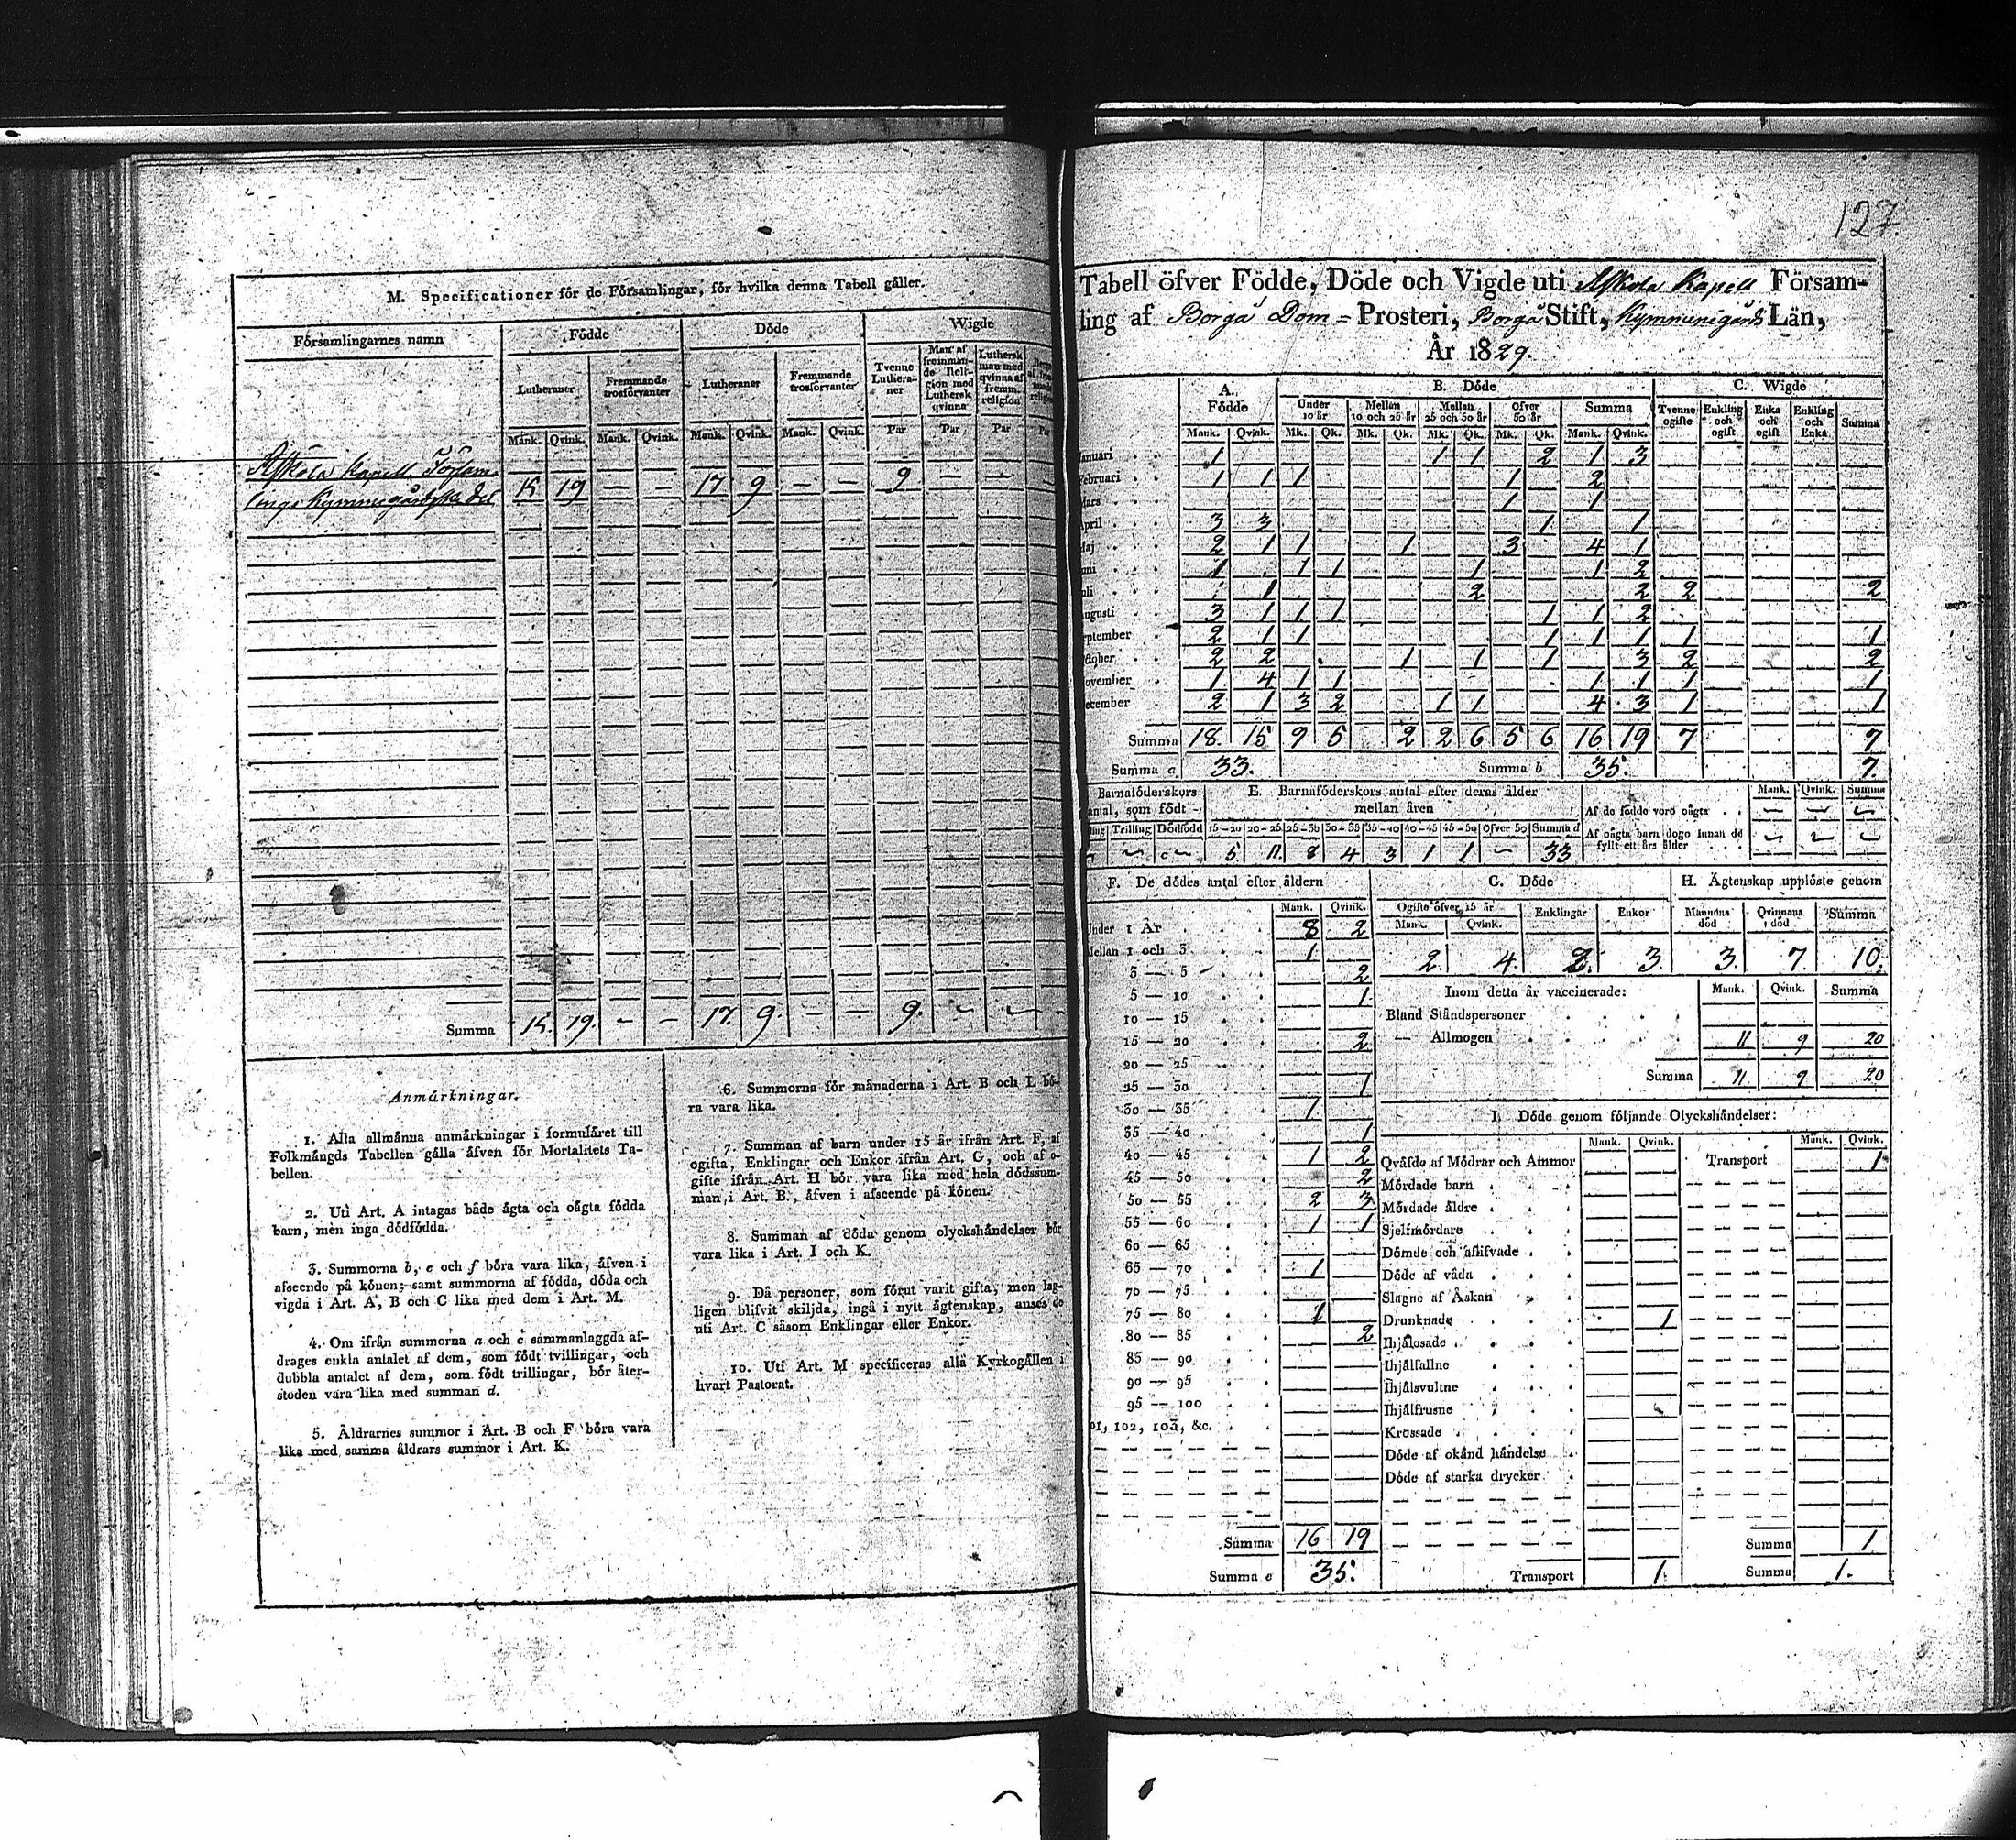 127.
M. Specificationer för de Församlingar, för hvilka denna Tabell gäller.
Församlingarnes namn | Födde | Döde | Wigde
Lutheraner | Fremmande trosförvanter | Lutheraner | Fremmande trosförvanter | Tvenne Lutheraner | Man af fremmande Religion med Luthersk qvinna | Luthersk man med qvinna af fremm. religion
Mank. Qvink. Mank. Qvink. Mank. Qvink. Mank. Qvink. Par Par Par
Askola Kapell Församlings Kymmenegårdska del 15 19 — — 17 9 — — 9 — —
Summa 15. 19. — — 17. 9. — — 9. — —
Anmärkningar.
1. Alla allmänna anmärkningar i formuläret till
Folkmängds Tabellen gälla äfven för Mortalitets Ta-
bellen.
2. Uti Art. A intagas både ägta och oägta födda
barn, men inga dödfödda.
3. Summorna b, e och f böra vara lika, äfven i
afseende på könen; samt summorna af födda, döda och
vigda i Art. A, B och C lika med dem i Art. M.
4. Om ifrån summorna a och c sammanlaggda af-
drages enkla antalet af dem, som födt tvillingar, och
dubbla antalet af dem, som födt trillingar, bör åter-
stoden vara lika med summan d.
5. Åldrarnes summor i Art. B och F böra vara
lika med samma åldrars summor i Art. K.
6. Summorna för månaderna i Art. B och L bö-
ra vara lika.
7. Summan af barn under 15 år ifrån Art. F, af
ogifta, Enklingar och Enkor ifrån Art. G, och af
gifte ifrån Art. H bör vara lika med hela dödssum-
man i Art. B, äfven i afseende på könen.
8. Summan af döda genom olyckshändelser bör
vara lika i Art. I och K.
9. Då personer, som förut varit gifta, men lag-
ligen blifvit skiljda, ingå i nytt ägtenskap, anses de
uti Art. C såsom Enklingar eller Enkor.
10. Uti Art. M specificeras alla Kyrkogällen i
hvart Pastorat.
Tabell öfver Födde, Döde och Vigde uti Askola Kapell Försam-
ling af Borgå Dom=Prosteri, Borgå Stift, Kymmenegårds Län,
År 1829.
A. Födde | B. Döde | C. Wigde
Under 10 år | Mellan 10 och 25 år | Mellan 25 och 50 år | Öfver 50 år | Summa | Tvenne ogifte | Enkling och ogift | Enka och ogift | Enkling och Enka | Summa
Mank. Qvink. Mk. Qk. Mk. Qk. Mk. Qk. Mk. Qk. Mank. Qvink.
Januari 1 1 1 2 1 3
Februari 1 1 1 1 2
Mars 1 1
April 3 3 1 1
Maj 2 1 1 1 3 4 1
Juni 1 1 1 1 1 2
Juli 1 2 2 2 2
Augusti 3 1 1 1 1 1 2
September 2 1 1 1 1 1 1 1
October 2 2 1 1 1 3 2 2
November 1 4 1 1 1 1 1 1
December 2 1 3 2 1 1 4 3 1 1
Summa 18. 15 9 5 2 2 6 5 6 16 19 7 7
Summa a 33. Summa b 35. 7.
Barnaföderskors antal, som födt | E. Barnaföderskors antal efter deras ålder mellan åren
Trilling Dödfödd 15–20 20–25 25–30 30–35 35–40 40–45 45–50 Öfver 50 Summa d
5 11 8 4 3 1 1 — 33
Mank. Qvink. Summa
Af de födde voro oägta — — —
Af oägta barn dogo innan de fyllt ett års ålder — — —
F. De dödes antal efter åldern
Mank. Qvink.
Under 1 År 8 2
Mellan 1 och 3 1
3 — 5 2
5 — 10 1
10 — 15
15 — 20 2
20 — 25
25 — 30 1
30 — 35 1
35 — 40 1
40 — 45 1 2
45 — 50 2
50 — 55 2 3
55 — 60 1 1
60 — 65
65 — 70 1
70 — 75
75 — 80 1
80 — 85 2
85 — 90
90 — 95
95 — 100
101, 102, 103, &c.
Summa 16 19
Summa e 35.
G. Döde
Ogifte öfver 15 år Enklingar Enkor
Mank. Qvink.
2. 4. 2. 3.
H. Ägtenskap upplöste genom
Mannens död Qvinnans död Summa
3. 7 10.
Inom detta år vaccinerade: Mank. Qvink. Summa
Bland Ståndspersoner
— Allmogen 11 9 20
Summa 11 9 20
I. Döde genom följande Olyckshändelser:
Mank. Qvink. Mank. Qvink.
Qväfde af Mödrar och Ammor Transport 1
Mördade barn
Mördade äldre
Sjelfmördare
Dömde och aflifvade
Döde af våda
Slagne af Åskan
Drunknade 1
Ihjälosade
Ihjälfallne
Ihjälsvultne
Ihjälfrusne
Krossade
Döde af okänd händelse
Döde af starka drycker
Summa 1
Transport 1. Summa 1.